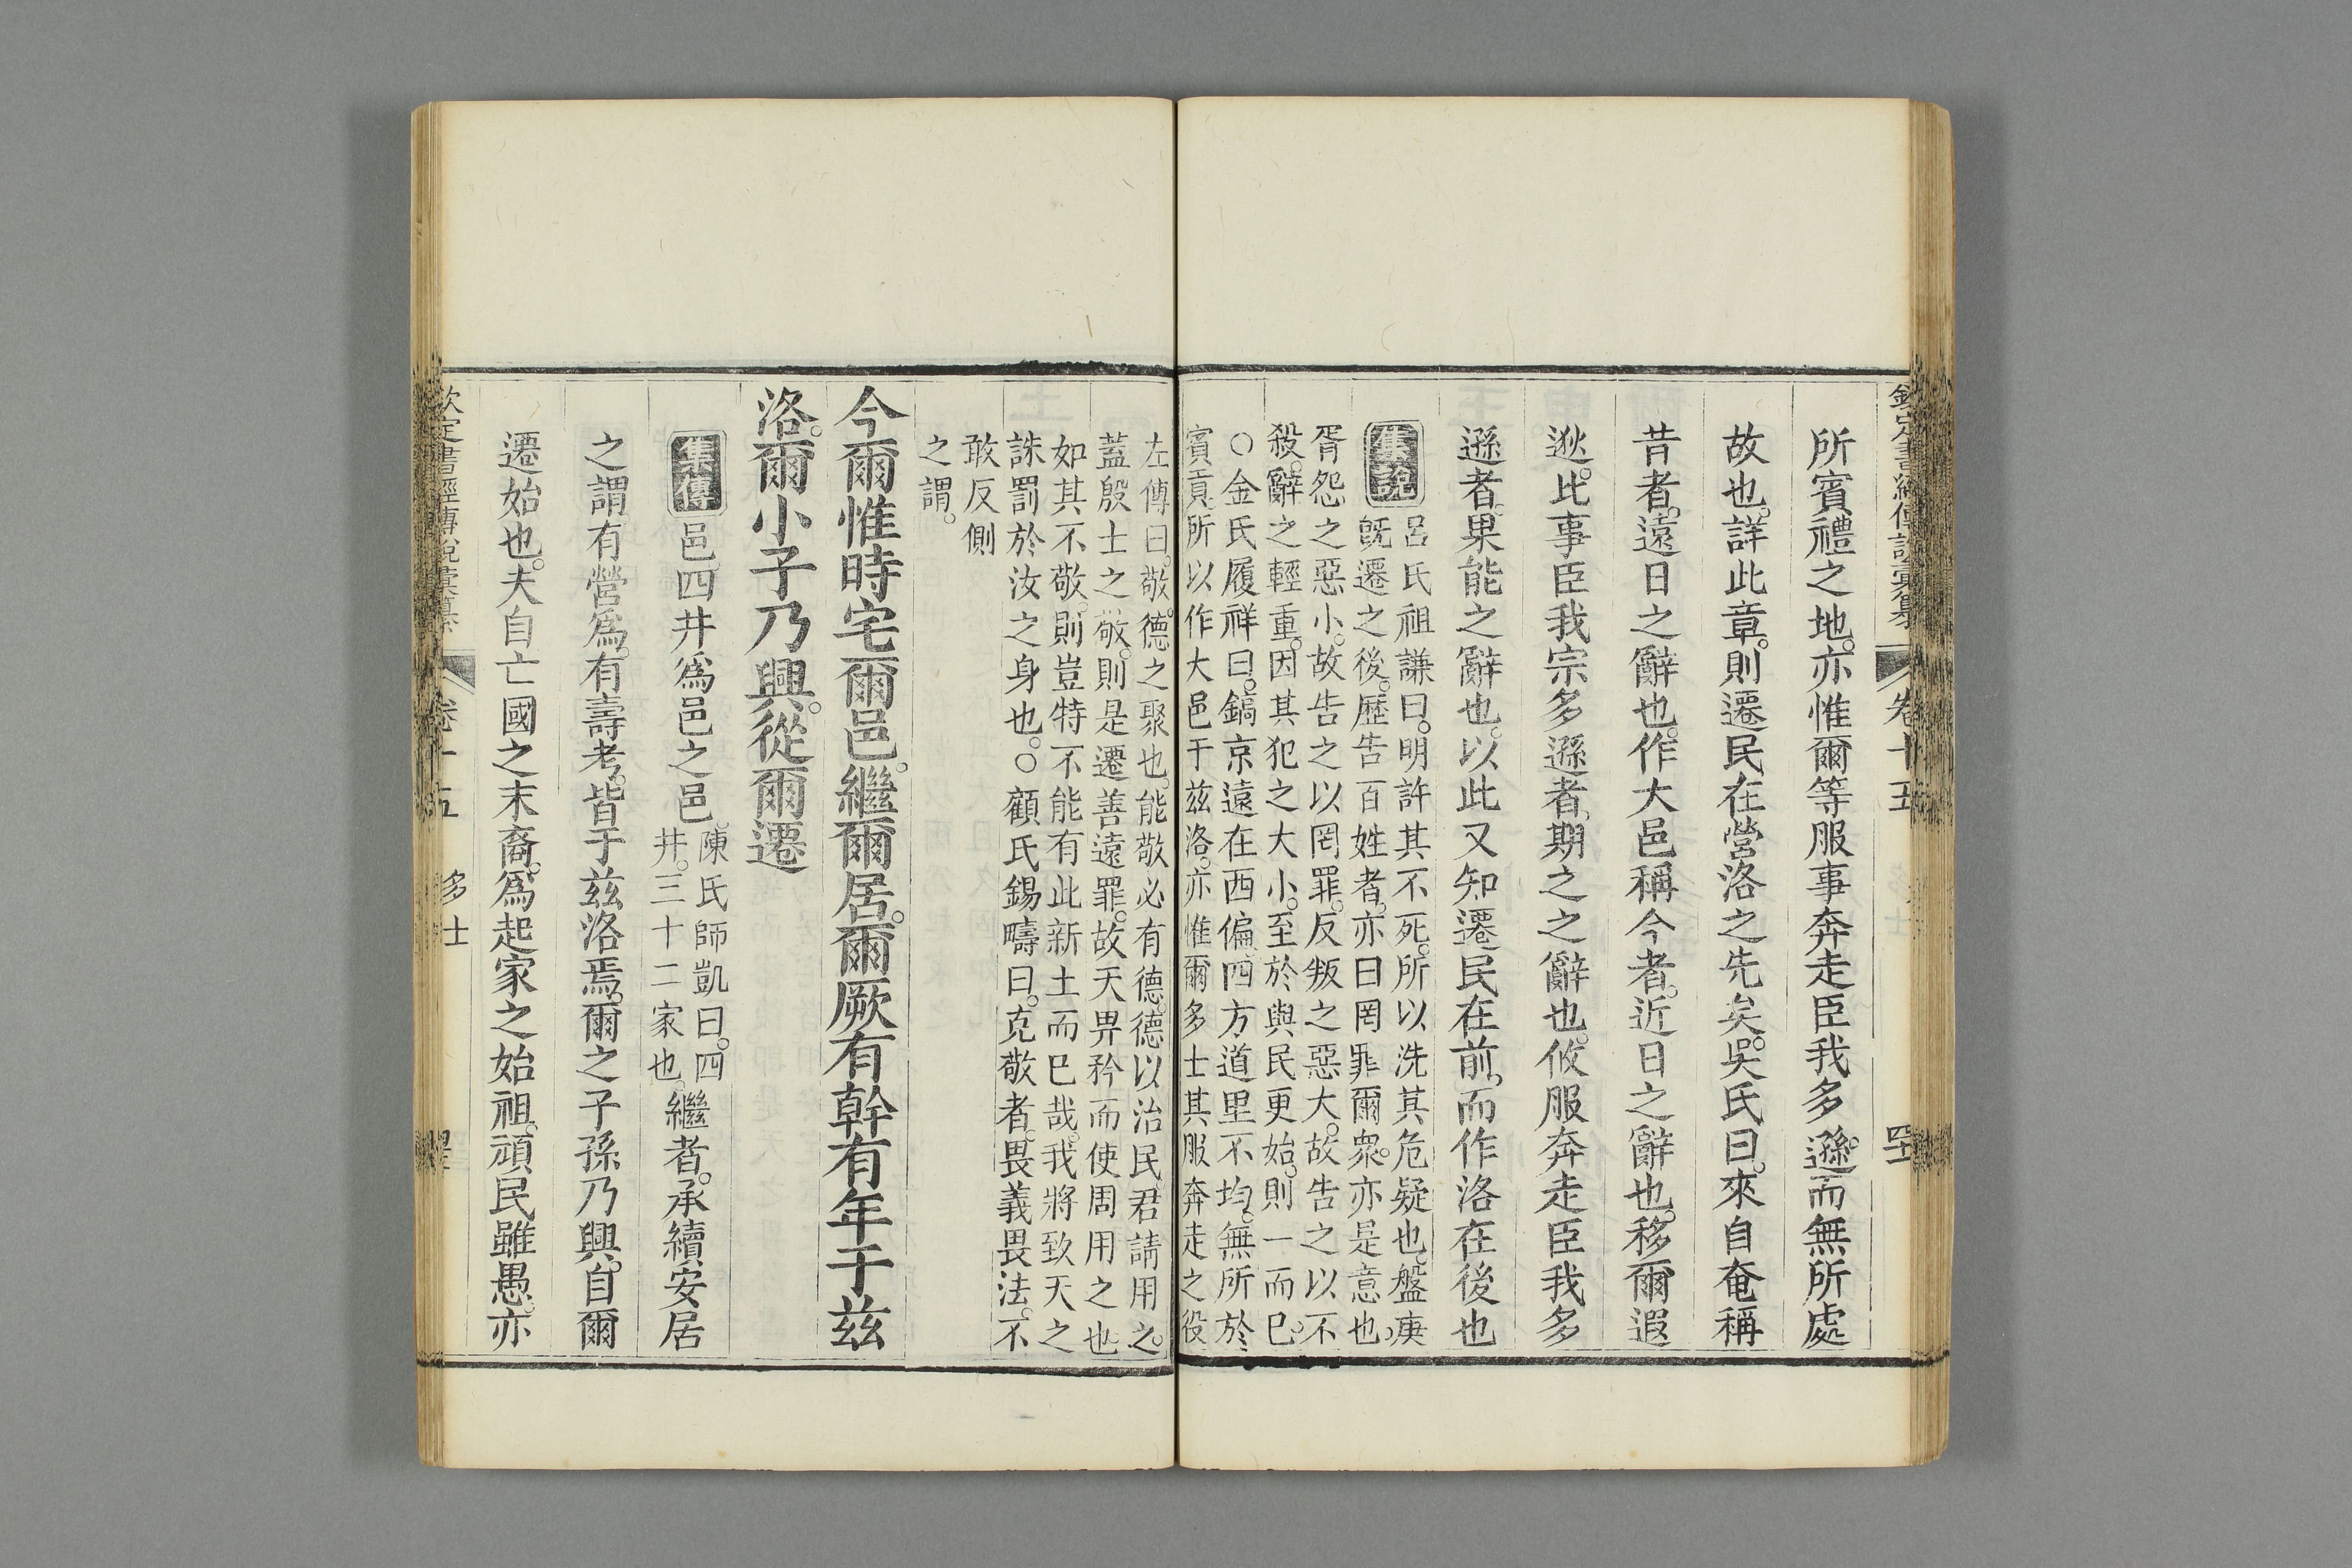 所賓禮之地。亦惟爾等服事奔走臣我多遜。而無所處
故也。詳此章。則遷民在營洛之先矣。吳氏曰。來自奄稱
昔者。遠日之辭也。作大邑稱今者。近日之辭也。移爾遐
逖。比事臣我宗多遜者。期之之辭也。攸服奔走臣我多
遜者。果能之辭也。以此又知遷民在前。而作洛在後也
集說
呂氏祖謙曰。明許其不死。所以洗其危疑也。盤庚
旣遷之後。歴告百姓者。亦曰罔罪爾衆。亦是意也。
胥怨之惡小。故告之以罔罪。反叛之惡大。故告之以不
殺。辭之輕重。因其犯之大小。至於與民更始。則一而巳。
○金氏履祥曰。鎬京遠在西偏。四方道里不均。無所於
賓貢。所以作大邑于茲洛。亦惟爾多士其服奔走之役
左傳曰。敬。德之聚也。能敬必有德。德以治民。君請用之。
蓋殷士之敬。則是遷善遠罪。故天畀矜而使周用之也
如其不敬。則豈特不能有此新土而巳哉。我將致天之
誅罰於汝之身也。○顧氏錫疇曰。克敬者。畏義畏法。不
敢反側
之謂。
今爾惟時宅爾邑。繼爾居。爾厥有幹有年于茲
洛。爾小子乃興。從爾遷
集傳
邑。四井爲邑之邑
陳氏師凱曰。四
井。三十二家也。
繼者。承續安居
之謂。有營爲。有壽考。皆于茲洛焉。爾之子孫乃興。自爾
遷始也。夫自亡國之末裔。爲起家之始祖。頑民雖愚。亦
欽定書經傳說彙纂
卷十五
多士